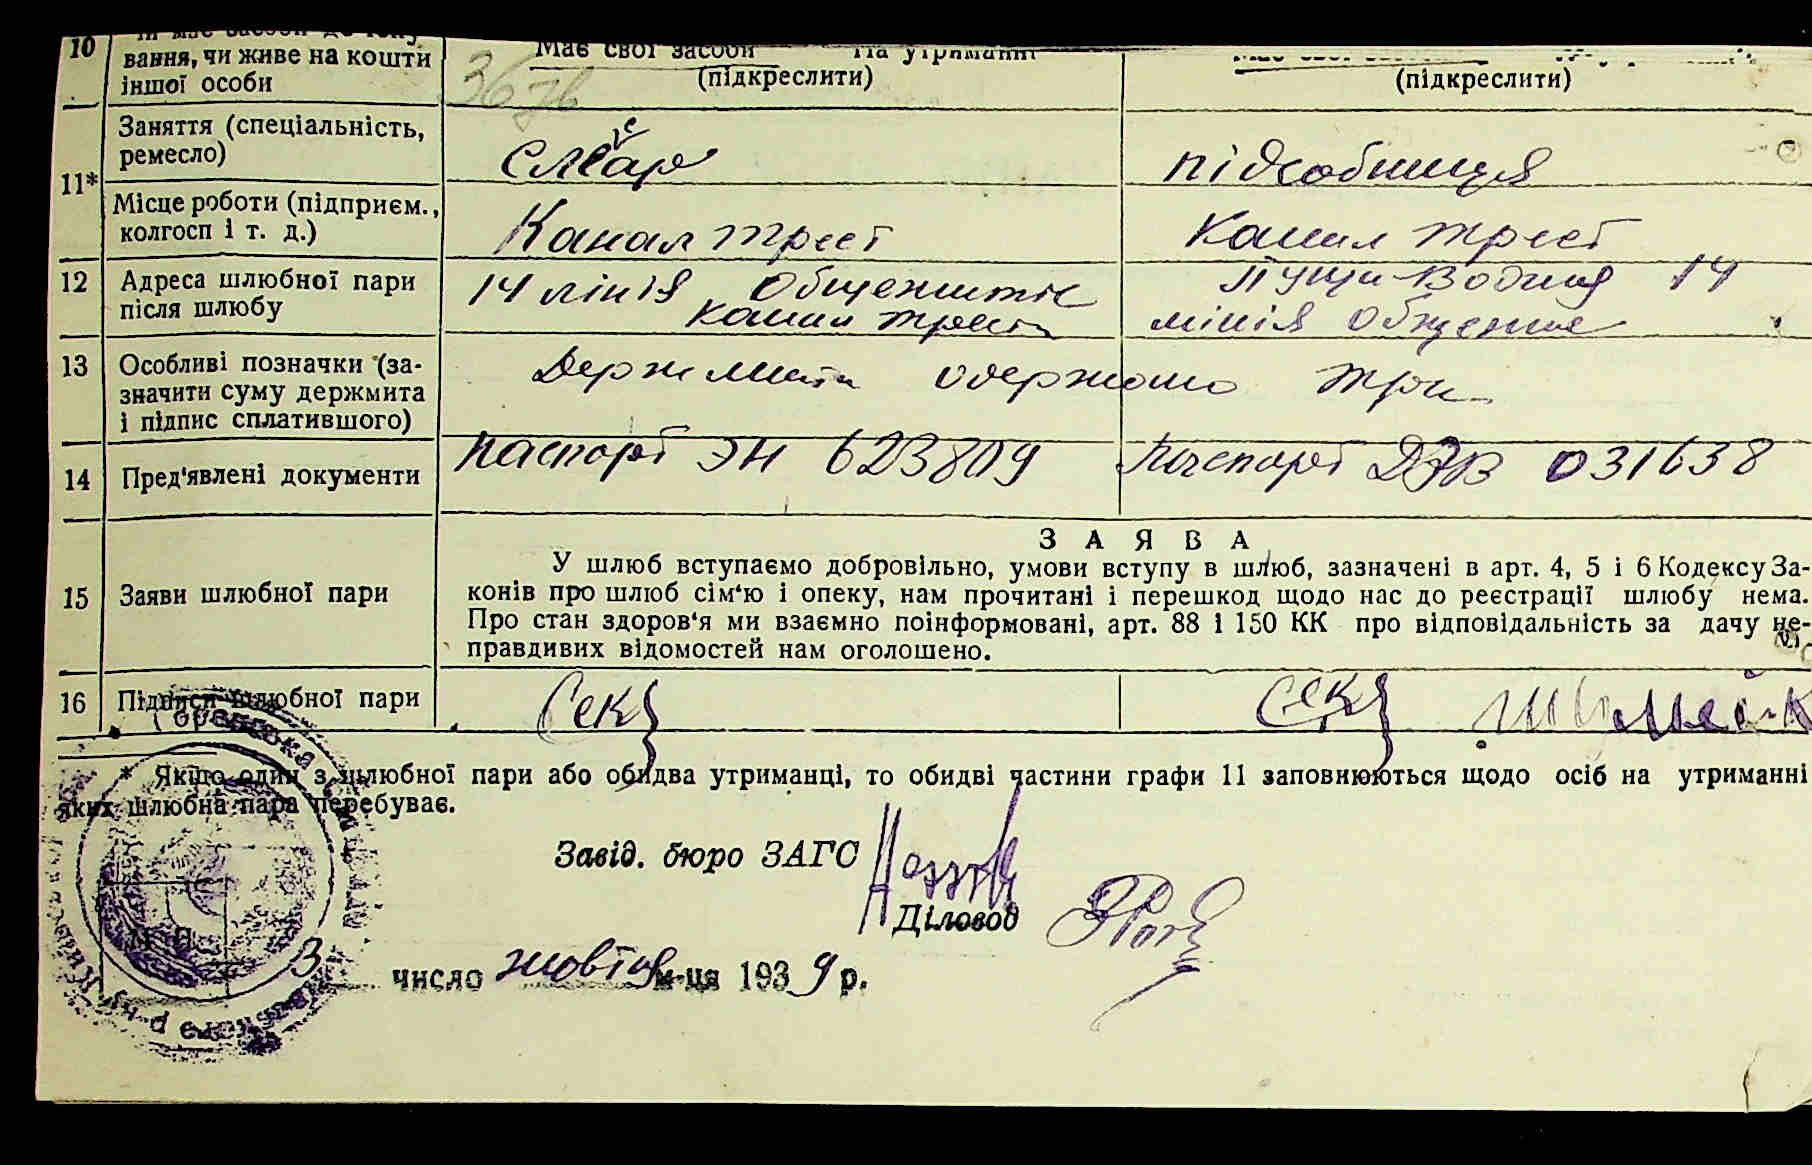 10
вання, чи живе на кошти
іншої особи
Має свої засоби На утриманні
(підкреслити)
(підкреслити)
11*
Заняття (спеціальність,
ремесло)
слєсар
підсобниця
Місце роботи (підприєм.,
колгосп і т. д.)
Канал трест
Канал трест
12
Адреса шлюбної пари
після шлюбу
14 лінія Общежитіє
Канал трест
Пущи-Водиця 14
лінія общежит
13
Особливі позначки (за-
значити суму держмита
і підпис сплатившого)
Держмита одержано три
14
Пред'явлені документи
Паспорт ЭН 623809
Паспорт 031638
15
Заяви шлюбної пари
ЗАЯВА
У шлюб вступаємо добровільно, умови вступу в шлюб, зазначені в арт. 4, 5 і 6 Кодексу За-
конів про шлюб сім'ю і опеку, нам прочитані і перешкод щодо нас до реєстрації шлюбу нема.
Про стан здоров'я ми взаємно поінформовані, арт. 88 і 150 КК про відповідальність за дачу не-
правдивих відомостей нам оголошено.
16
Підписи шлюбної пари
* Якщо один з шлюбної пари або обидва утриманці, то обидві частини графи 11 заповнюються щодо осіб на утриманні
яких шлюбна пара перебуває.
Завід. бюро ЗАГС
Діловод
3 число жовтня м-ця 1939 р.